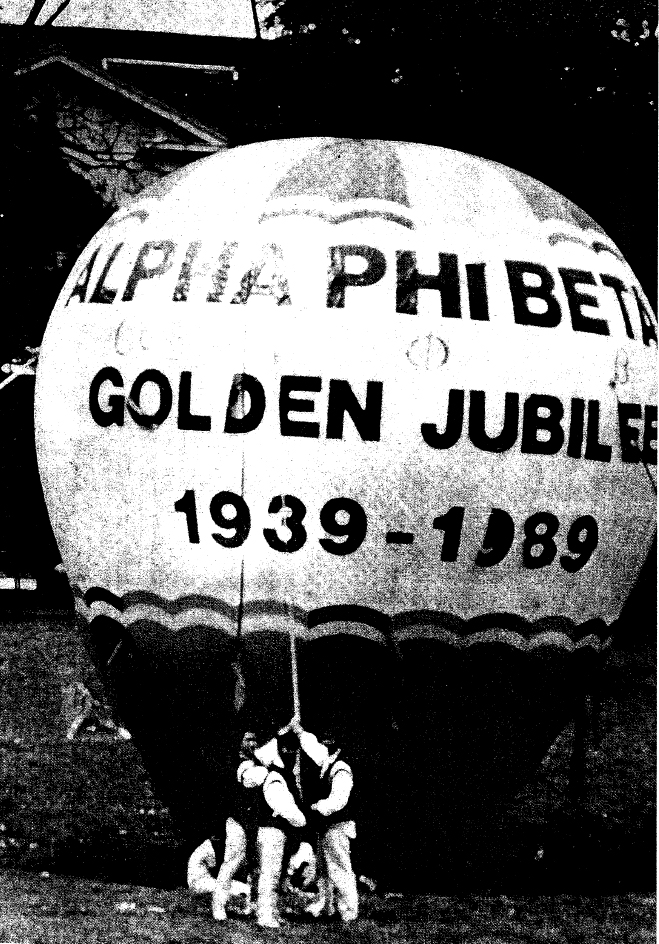 ALPHA PHI BETA
Φ β
GOLDEN JUBILEE
1939-1989